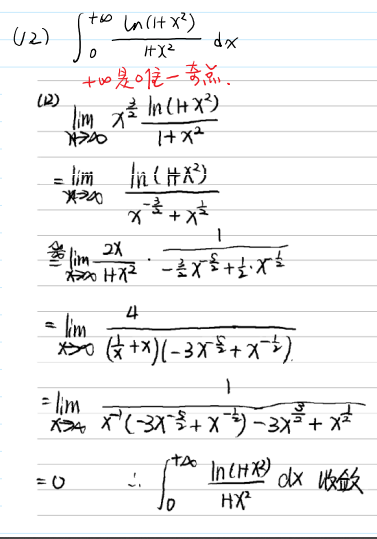 (12) ∫_0^{+∞} ln(1+x²)/(1+x²) dx
+∞是唯一奇点.
(12) lim_{x→∞} x^{3/2} ln(1+x²)/(1+x²)
= lim_{x→∞} ln(1+x²)/(x^{-3/2}+x^{1/2})
lim_{x→∞} 2x/(1+x²) · 1/(-3/2 x^{-5/2}+1/2·x^{-1/2})
= lim_{x→∞} 4/((1/x+x)(-3x^{-5/2}+x^{-1/2}))
= lim_{x→∞} 1/(x^{-1}(-3x^{-5/2}+x^{-1/2})-3x^{-3/2}+x^{1/2})
= 0 ∴ ∫_0^{+∞} ln(1+x²)/(1+x²) dx 收敛